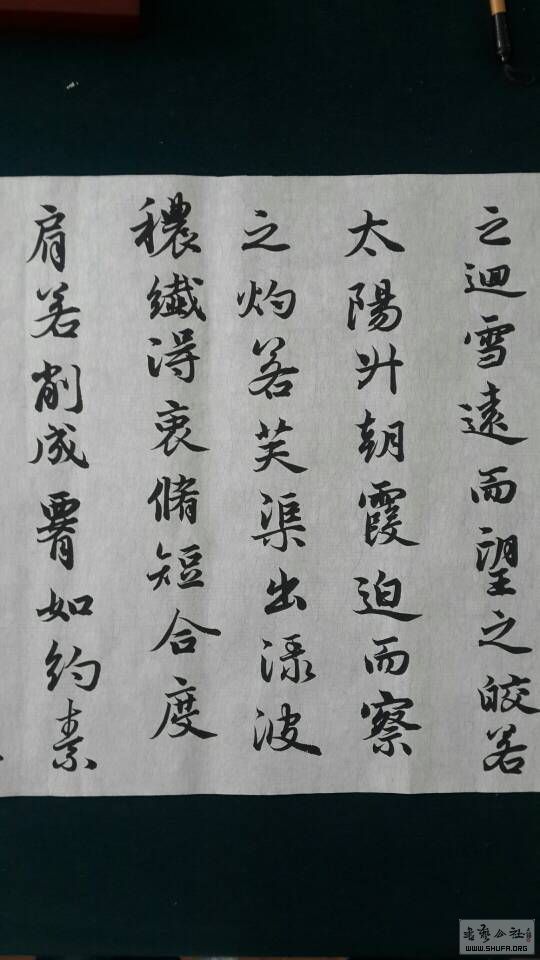 之迴雪遠而望之皎若
太陽升朝霞迫而察
之灼若芙渠出渌波
穠纖得衷脩短合度
肩若削成腰如約素
WWW.SHUFA.ORG